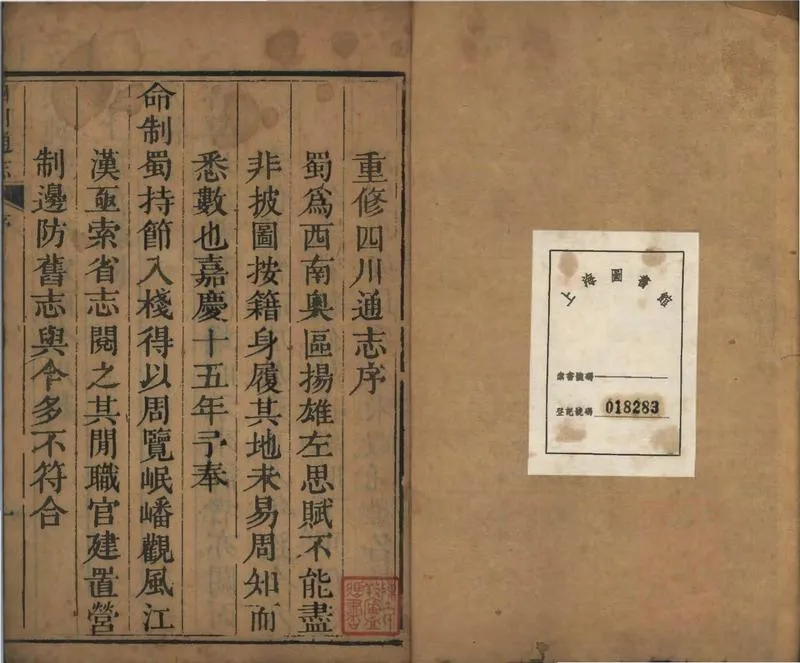 圖書館
索書號碼
登記號碼 018283
重修四川通志序
蜀爲西南奧區揚雄左思賦不能盡
非披圖按籍身履其地未易周知而
悉數也嘉慶十五年予奉
命制蜀持節入棧得以周覽岷嶓觀風江
漢亟索省志閱之其閒職官建置營
制邊防舊志與今多不符合
川通志
序
一